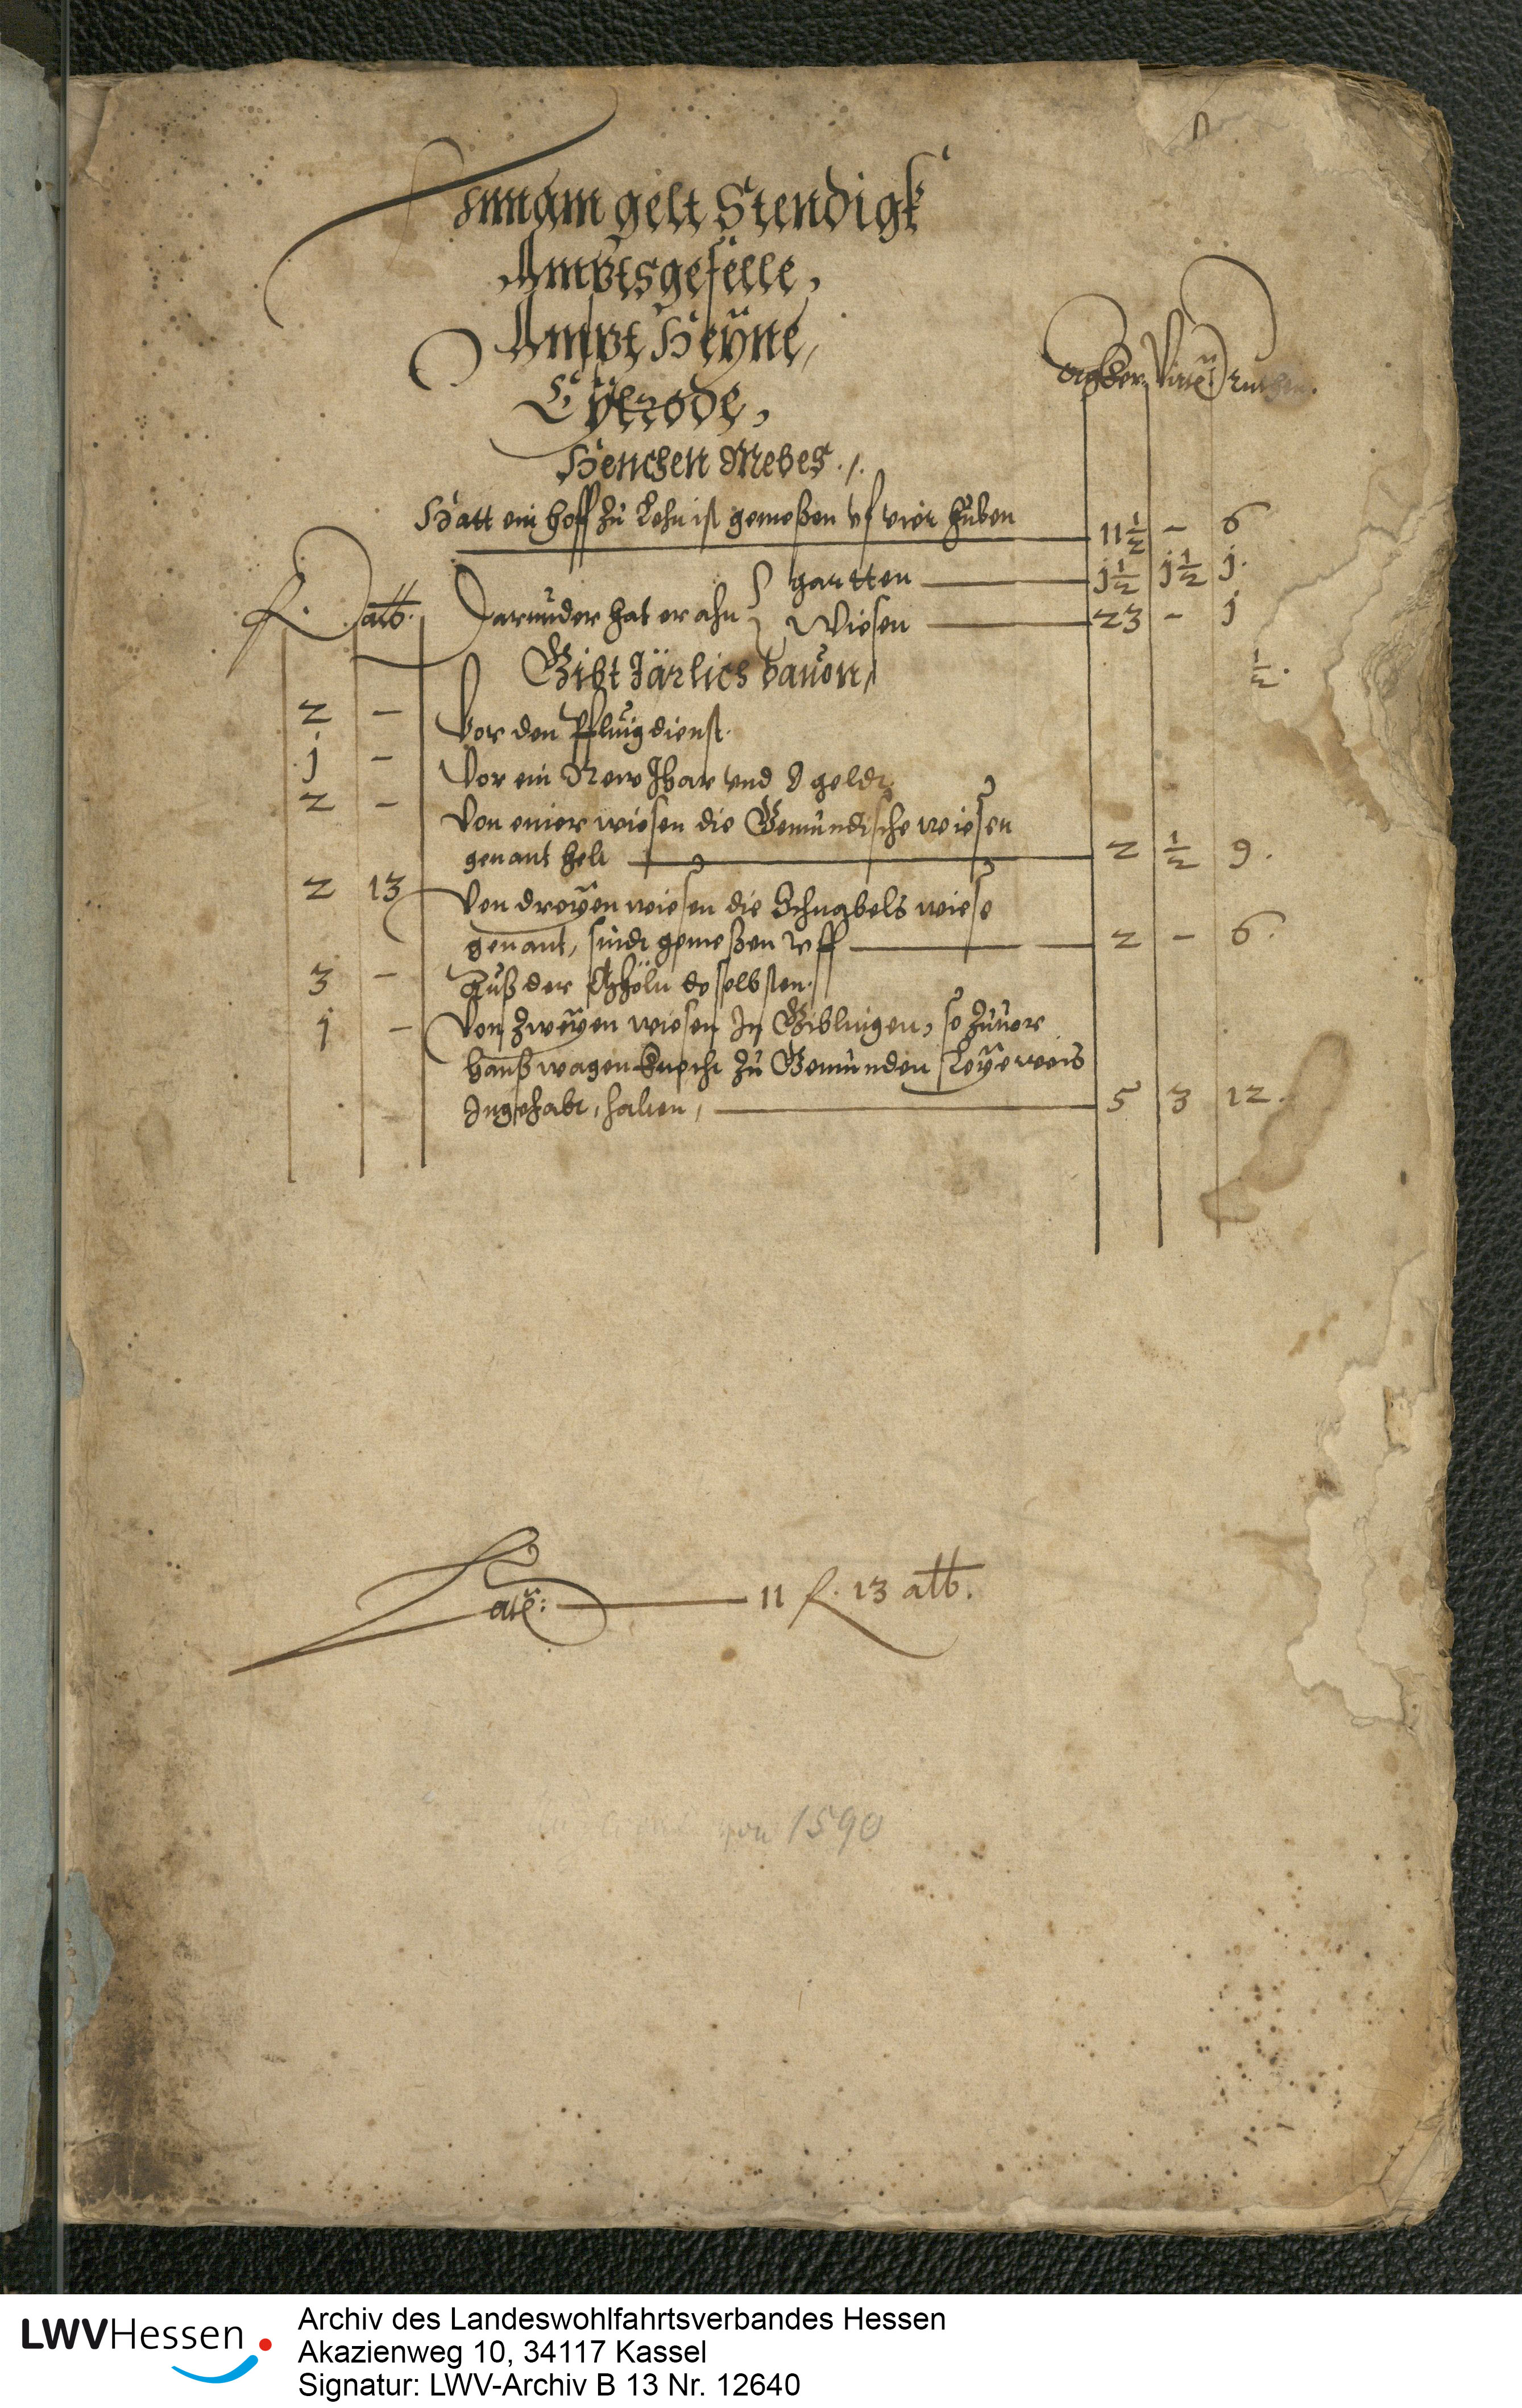 Innam gelt Stendigk
Ampts gefelle,
Ampt Heÿne,
Eÿlrode,
Acker. Virtel Ruthen.
Henchen Mebes ./.
Hatt ein hoff zu Lehn ist gemeßen vf vier huben 11½ – 6
fl. alb.
gartten j½ j½ j.
Darunder hat er ahn
Wiesen 23 – j
½.
Gibt Järlich davon,
2 – Vor den Pflugdienst.
j – Vor ein New Jhar vnd geldt.
2 – Von einer wiesen die Gemündische wiesen
genant helt 2 ½ 9.
2 13 Von dreÿen wiesen die Schnabels wiese
genant, sindt gemeßen vff 2 – 6.
3 – Auß der doselbsten.
1 – Von zweÿen wiesen In Giblingen, so zuuor
hanß wagenknecht zu Gemünden Leÿeweis
Ingehabt, halten, 5 3 12.
Latꝰ: 11 fl. 13 alb.
von 1590
LWVHessen
Archiv des Landeswohlfahrtsverbandes Hessen
Akazienweg 10, 34117 Kassel
Signatur: LWV-Archiv B 13 Nr. 12640